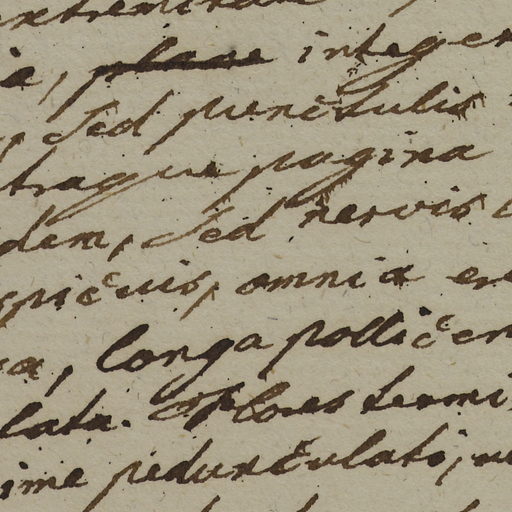 extremitat
ia, plane integer
, sed punctulis
traque pagina
dem, sed nervis
spicuis, omnia en
va, longa pollicem
lata. Flores termi
ime pedunculati, u